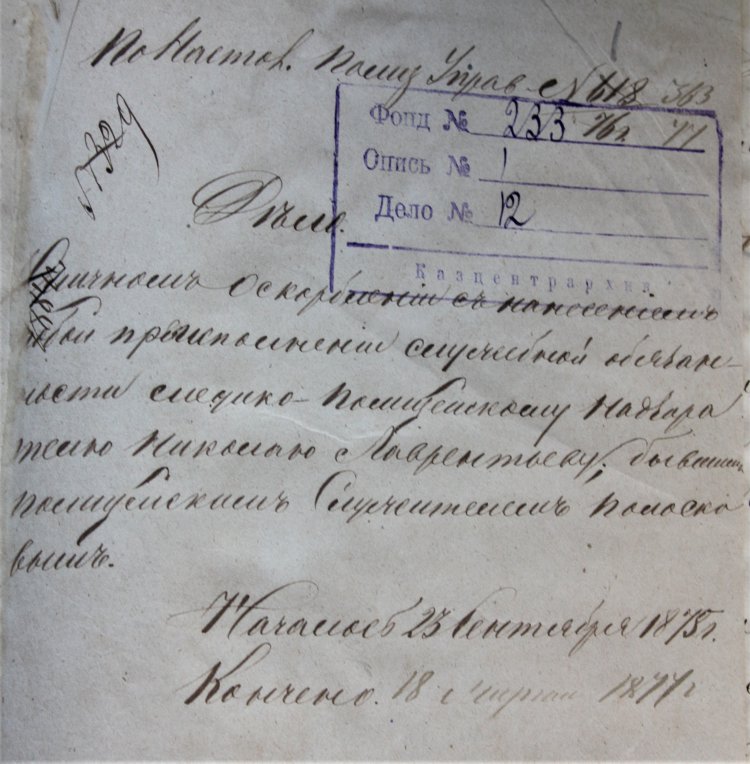 По Настов. Полиц Управ. № 618 363
76 г. 77
№ 329
Фонд № 233
Опись № 1
Дело № 12
Казцентрархив
Дѣло.
О личномъ оскорбленіи съ нанесеніемъ
побои при исполненіи служебной обязан-
ности медико-полицейскому надзира
телю Николаю Лаврентьеву, бывшимъ
полицейскимъ Служителемъ Полоско
вымъ.
Началось 23 Сентября 1875 г.
Кончено. 18 марта 1877 г